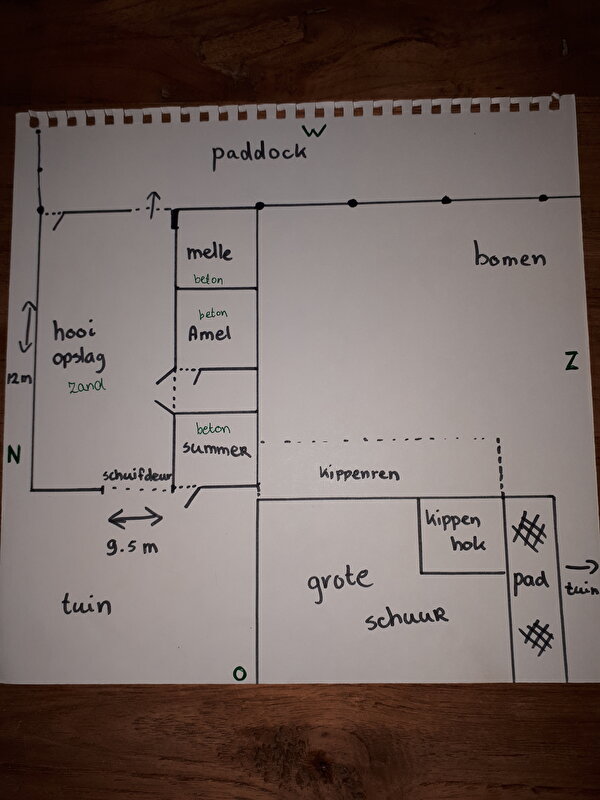 W
paddock
melle
beton
bomen
beton
Amel
hooi
opslag
zand
12m
Z
N
beton
summer
schuifdeur
kippenren
9.5 m
kippen
hok
grote
schuur
pad
tuin
tuin
O